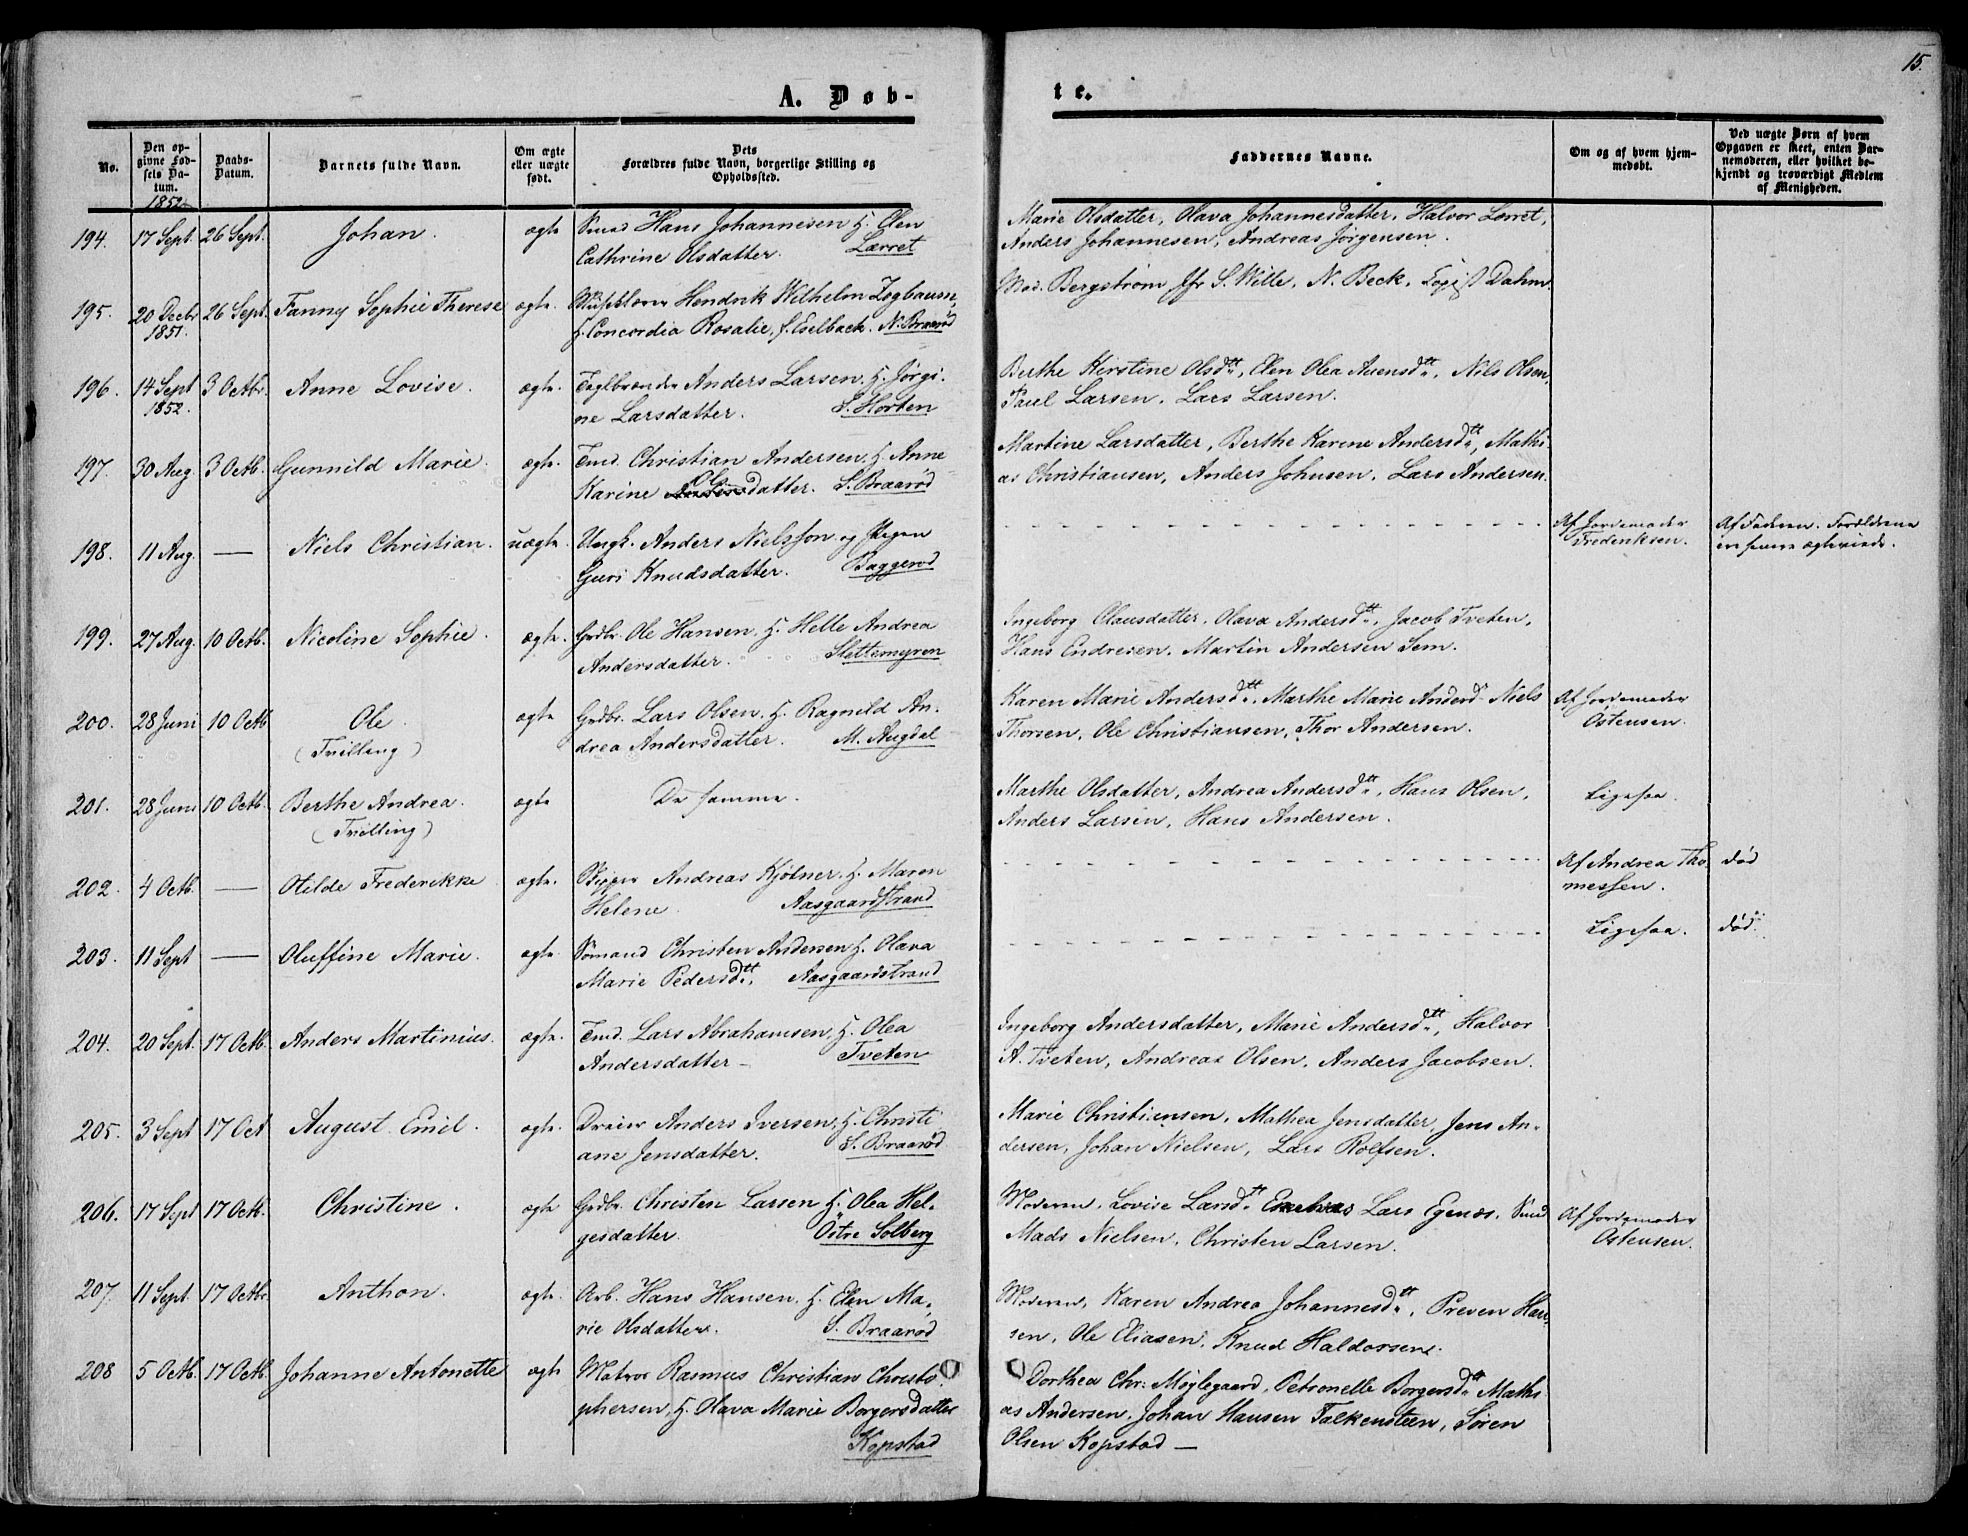 15.
A. Døb-
te.
No.
Den op-
givne Fød-
sels Da-
tum.
1852
Daabs-
Datum.
Barnets fulde Navn.
Om ægte
eller uægte
født.
Dets
Forældres fulde Navn, borgerlige Stilling og
Opholdssted.
Faddernes Navne.
Om og af hvem hjem-
medøbt.
Ved uægte Børn af hvem
Opgaven er skeet, enten Bar-
nemoderen, eller hvilket be-
kjendt og troværdigt Medlem
af Menigheden.
194. 17 Sept. 26 Sept. Johan. ægte Smed Hans Johannesen, H. Elen
Cathrine Olsdatter. Lørret
Marie Olsdatter, Olava Johannesdatter, Halvor Lørret,
Anders Johannesen, Andreas Jørgensen.
195. 20 Decbr 1851. 26 Sept. Fanny Sophie Therese ægte. Musiklærer Hendrik Wilhelm Zogbaum,
H. Concordia Rosalie, f. Eselbach. N. Braarød
Mad. Bergstrøm Jfr S. Wille, N. Beck, Copist Dahm.
196. 14 Sept 1852. 3 Octbr. Anne Lovise. ægte. Teglbrænder Anders Larsen, H. Jørgi-
ne Larsdatter. S. Horten
Berthe Kirstine Olsdtr, Elen Olea Auensdtr, Nils Olsen,
Paul Larsen, Lars Larsen.
197. 30 Aug. 3 Octb. Gunnild Marie. ægte. Tmd. Christian Andersen, H. Anne
Karine Olsdatter. S. Braarød
Martine Larsdatter, Berthe Karine Andersdtr, Mathi-
as Christiansen, Anders Johnsen, Lars Andersen.
198. 11 Aug. — Niels Christian. uægte. Ungk. Anders Nielsson og Pigen
Guri Knudsdatter. Baggerød
Af Jordemoder
Frederiksen.
Af Faderen. Forældrene
ere senere ægteviede.
199. 27 Aug. 10 Octb. Nicoline Sophie. ægte. Grdbr. Ole Hansen, H. Helle Andrea
Andersdatter. Slettemyren
Ingeborg Clausdatter, Olava Andersdtr, Jacob Tveten,
Hans Endresen, Martin Andersen Sem.
200. 28 Juni 10 Octb Ole. ægte Grdbr. Lars Olsen, H. Ragnild An-
(Tvilling) drea Andersdatter. M. Augdal
Karen Marie Andersdtr, Marthe Marie Andersdtr Niels
Thorsen, Ole Christiansen, Thor Andersen.
Af Jordemoder
Østensen.
201. 28 Juni 10 Octb. Berthe Andrea. ægte De samme.
(Tvilling)
Marthe Olsdatter, Andrea Andersdtr, Hans Olsen,
Anders Larsen, Hans Andersen.
Ligesaa.
202. 4 Octb. — Otilde Frederikke ægte. Skipper Andreas Kjølner, H. Maren
Helene. Aasgaardstrand
Af Andrea Tho-
messen.
død
203. 11 Sept — Oluffine Marie. ægte. Sømand Christen Andersen H. Olava
Marie Pedersdtr. Aasgaardstrand
Ligesaa. død.
204. 20 Sept. 17 Octb. Anders Martinius. ægte. Tmd. Lars Abrahamsen, H. Olea
Andersdatter — Tveten
Ingeborg Andersdatter, Marie Andersdtr, Halvor
A. Tveten, Andreas Olsen, Anders Jacobsen.
205. 3 Sept 17 Oct August Emil. ægte. Dreier Anders Iversen, H. Christi
ane Jensdatter. S. Braarød
Marie Christiansen, Mathea Jensdatter, Jens An-
dersen, Johan Nielsen, Lars Rolfsen.
206. 17 Sept 17 Octb. Christine. ægte Grdbr. Christen Larsen H. Olea Hel-
gesdatter. Østre Solberg
Moderen, Lovise Larsdtr Lars Egenæs. Smed
Mads Nielsen, Christen Larsen.
Af Jordemoder
Østensen.
207. 11 Sept. 17 Octbr. Anthon. ægte. Arb. Hans Hansen, H. Elen Ma-
rie Olsdatter. S. Braarød
Moderen, Karen Andrea Johannesdtr, Preven Han-
sen, Ole Eliasen, Knud Haldorsen.
208 5 Octb. 17 Octb. Johanne Antonette ægte Matros Rasmus Christian Christo-
phersen, H. Olava Marie Borgersdatter
Kopstad
Dorthea Chr. Møylegaard, Petronelle Borgersdtr Mathi-
as Andersen, Johan Hansen Falkensteen, Søren
Olsen Kopstad —